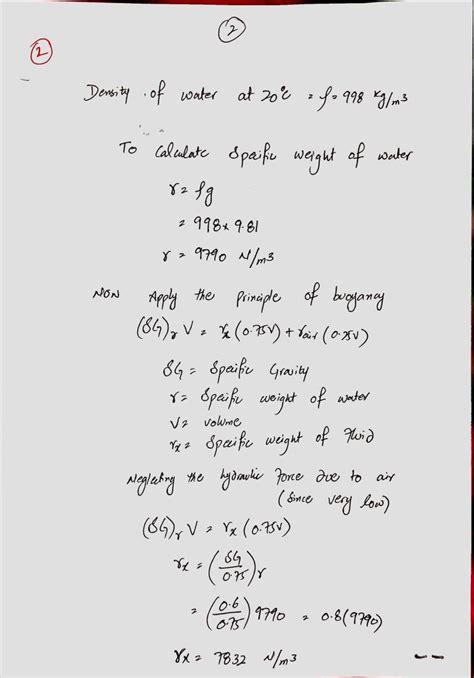 2
2
Density of water at 20°c = ρ = 998 kg/m3
To Calculate Specific weight of water
γ = ρg
= 998 × 9.81
γ = 9790 N/m3
Now Apply the principle of buoyancy
(SG)γ V = γx (0.75V) + γair (0.25V)
SG = Specific Gravity
γ = Specific weight of water
V = volume
γx = Specific weight of Fluid
Neglecting the hydraulic Force due to air
(Since very low)
(SG)γ V = γx (0.75V)
γx = (SG/0.75)γ
= (0.6/0.75) 9790 = 0.8(9790)
γx = 7832 N/m3